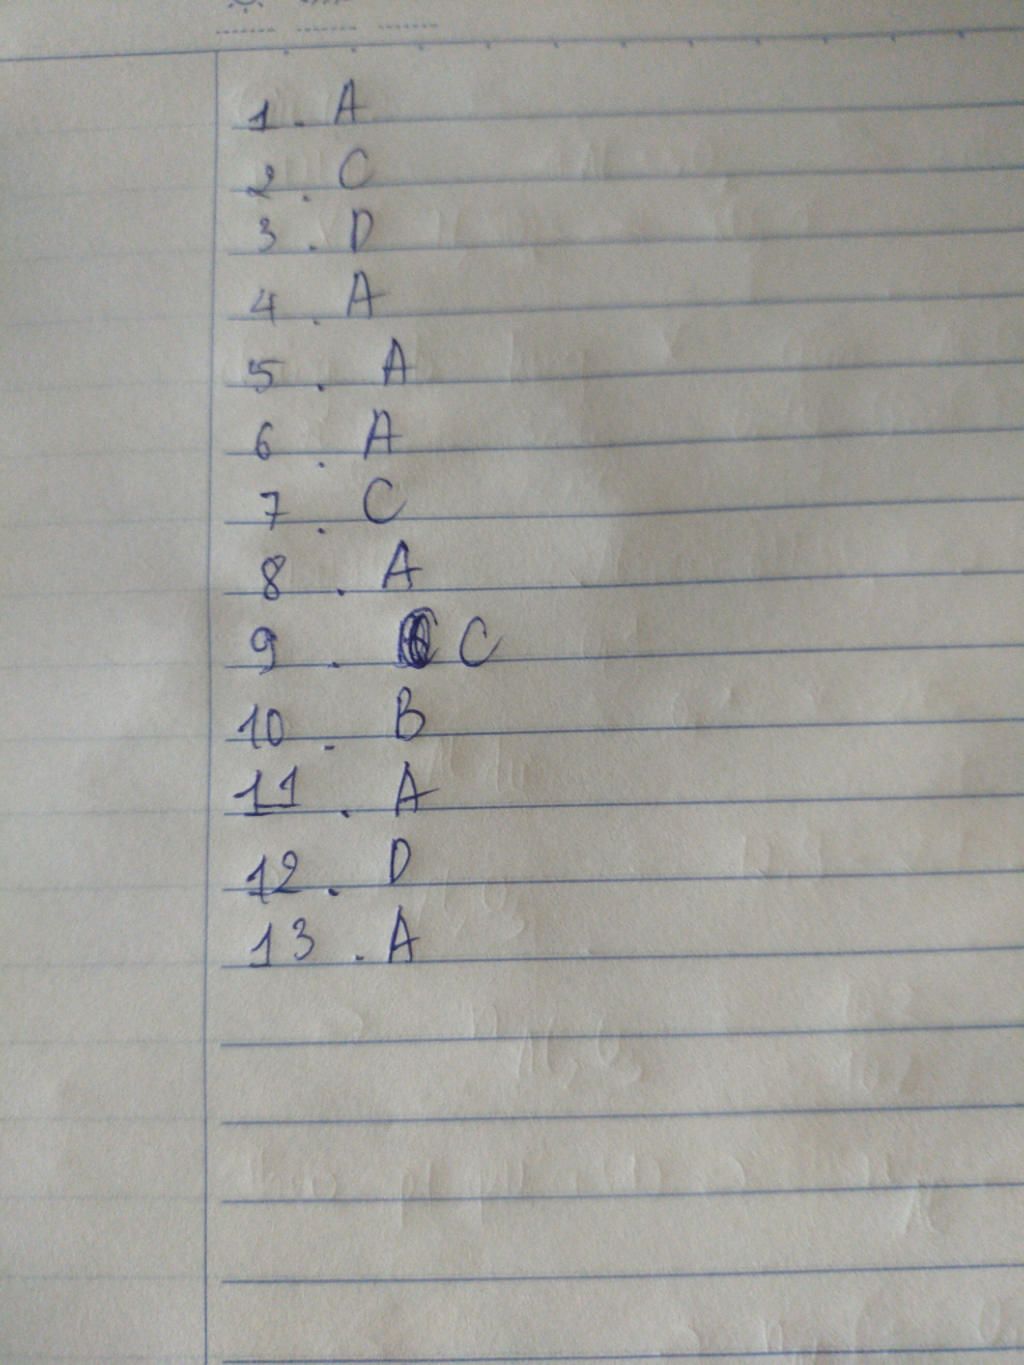 1. A
2. C
3. D
4. A
5. A
6. A
7. C
8. A
9. C
10. B
11. A
12. D
13. A